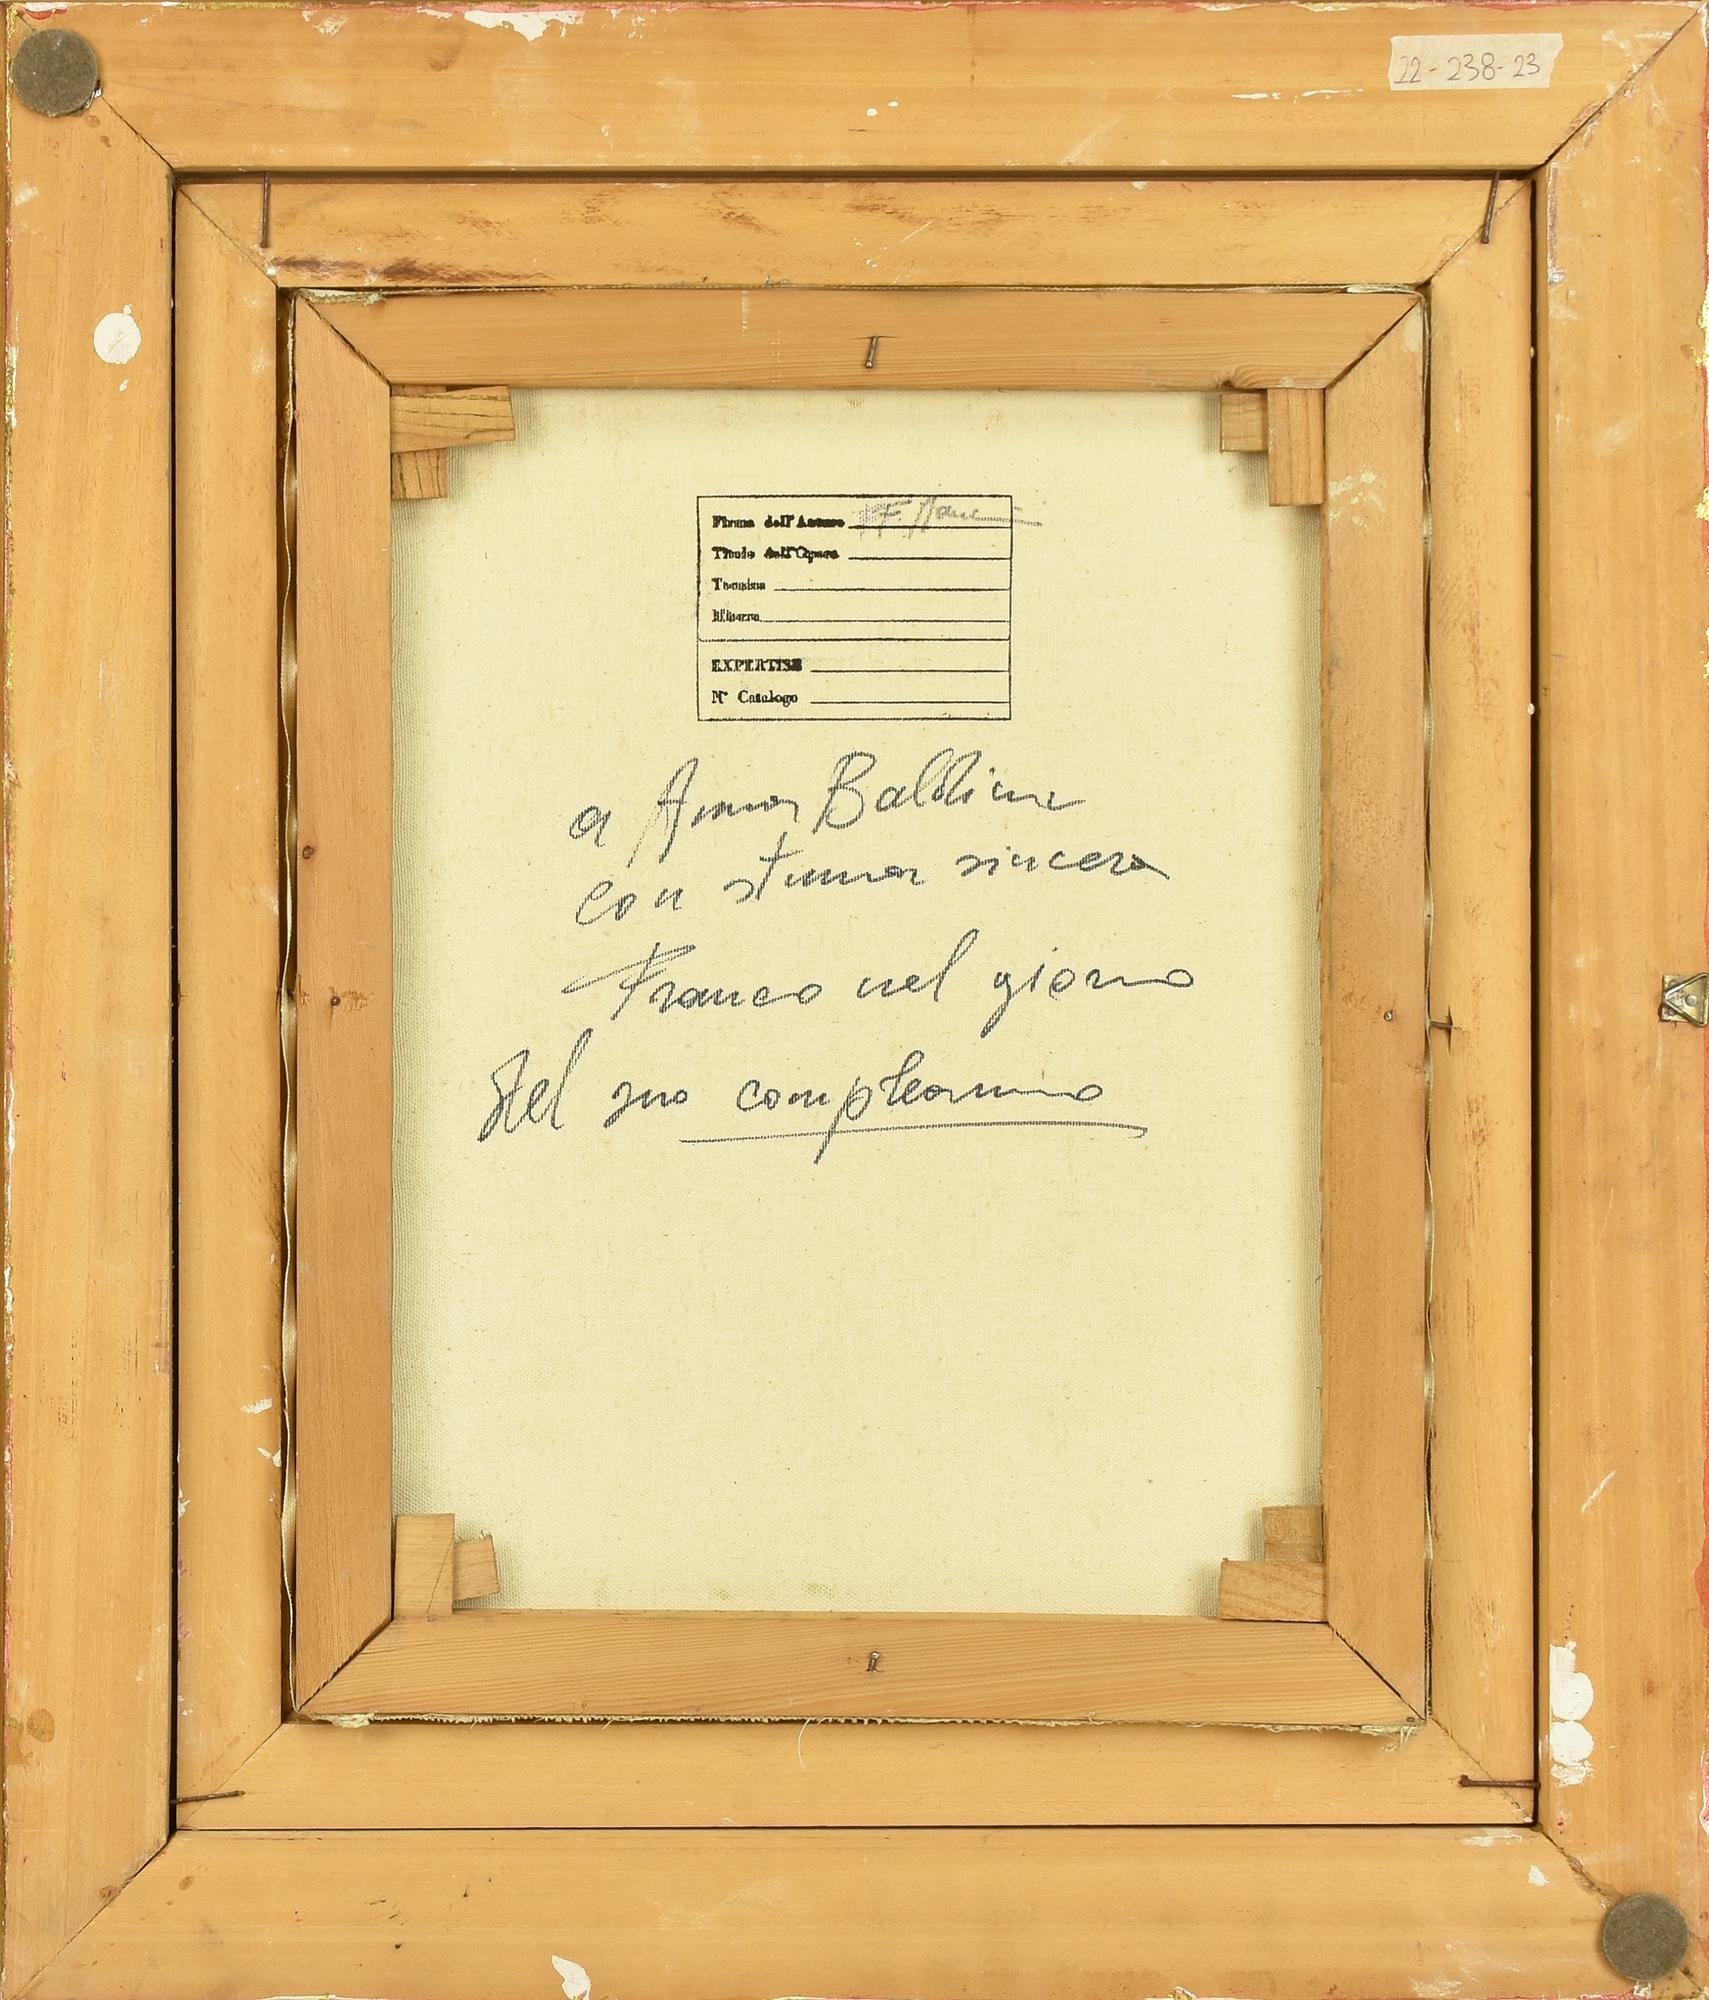 22-238-23
Firma dell'Autore F.
Titolo dell'Opera
Tecnica
Misure
EXPERTISE
N° Catalogo
a Anna Baldini
con stima sincera
Franco nel giorno
del suo compleanno